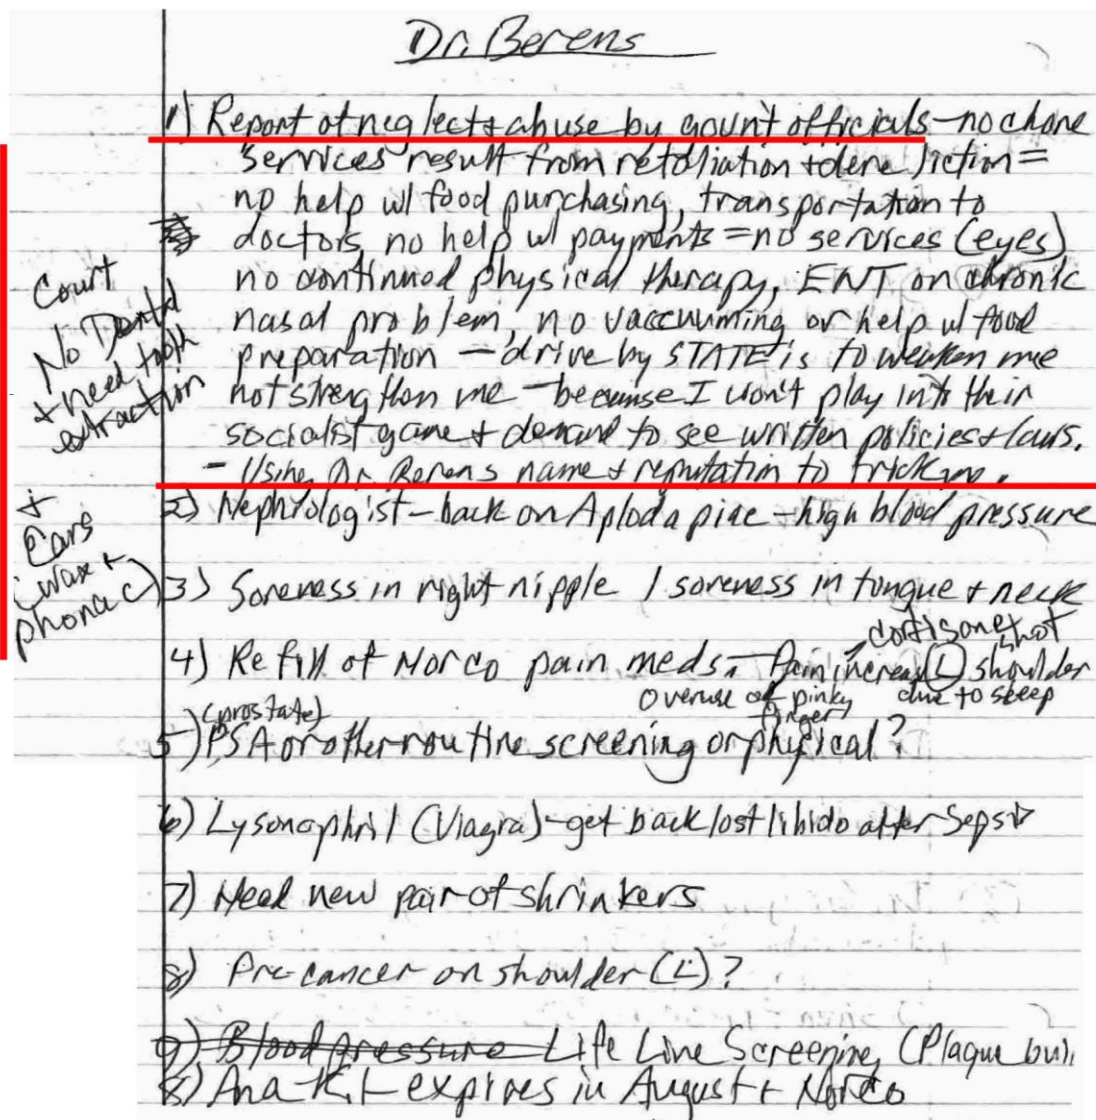 Dr. Berens
1) Report of neglect + abuse by gov't officials - no chore
services result from retaliation + dereliction =
no help w/ food purchasing, transportation to
doctors, no help w/ payments = no services (eyes)
no continued physical therapy, ENT on chronic
nasal problem, no vaccuuming or help w/ food
preparation - drive by STATE is to weaken me
not strengthen me - because I won't play into their
socialist game + demand to see written policies + laws.
- Using Dr. Berens name + reputation to trick me.
Court
No Dental
+ need tooth
extraction
+
Ears
(wax +
phonac)
2) Nephrologist - back on Aplodapine - high blood pressure
3) Soreness in right nipple / soreness in tongue + neck
cortisone shot
4) Refill of Norco pain meds. - Pain increase (L) shoulder
overuse of pinky finger due to sleep
(prostate)
5) PSA or other routine screening or physical?
6) Lysonophril (Viagra) - get back lost libido after Sepsis
7) Need new pair of shrinkers
8) Pre-cancer on shoulder (L)?
9) Blood pressure Life Line Screening (Plaque buil
8) Ana-Kit expires in August + Norco